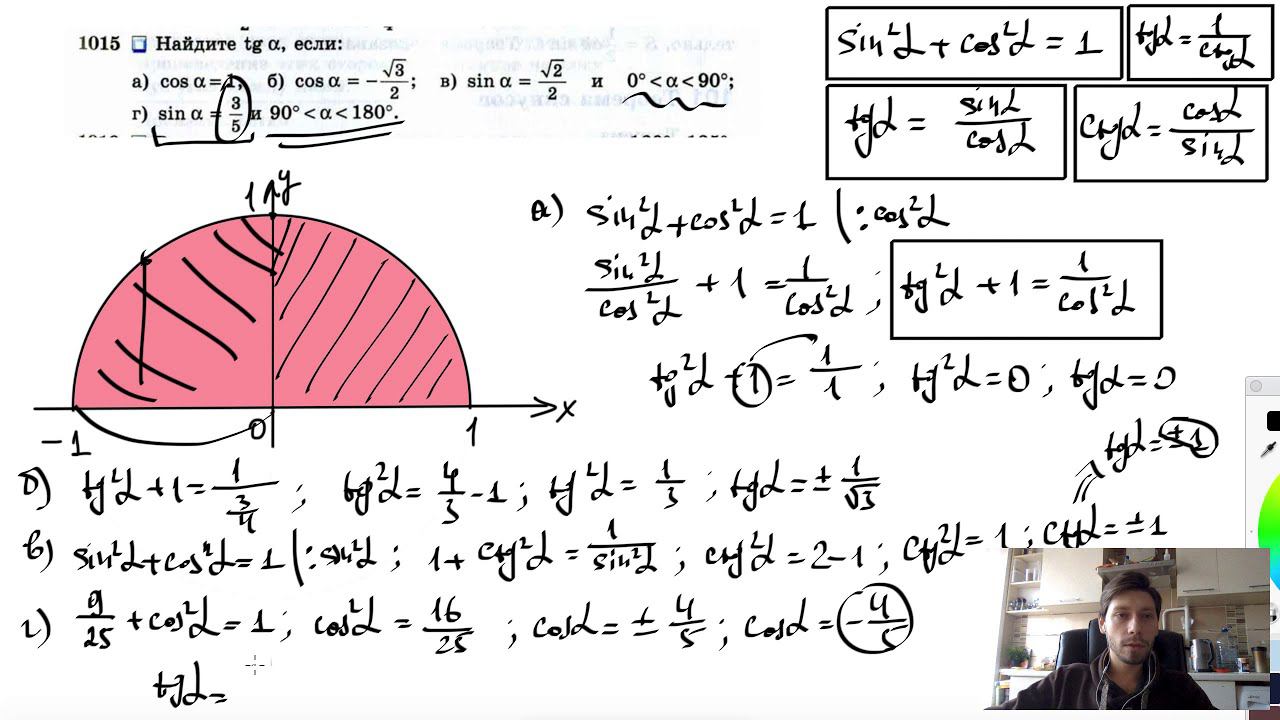 1015 Найдите tg α, если:
а) cos α = 1; б) cos α = −√3/2; в) sin α = √2/2 и 0° < α < 90°;
г) sin α = 3/5 и 90° < α < 180°.
sin²α + cos²α = 1
tgα = 1/ctgα
tgα = sinα/cosα
ctgα = cosα/sinα
1 y
−1 0 1 x
а) sin²α + cos²α = 1 | : cos²α
sin²α/cos²α + 1 = 1/cos²α ; tg²α + 1 = 1/cos²α
tg²α + 1 = 1/1 ; tg²α = 0 ; tgα = 0
tgα = ±1
б) tg²α + 1 = 1/(3/4) ; tg²α = 4/3 − 1 ; tg²α = 1/3 ; tgα = ± 1/√3
в) sin²α + cos²α = 1 | : sin²α ; 1 + ctg²α = 1/sin²α ; ctg²α = 2 − 1 ; ctg²α = 1 ; ctgα = ±1
г) 9/25 + cos²α = 1 ; cos²α = 16/25 ; cosα = ± 4/5 ; cosα = −4/5
tgα =